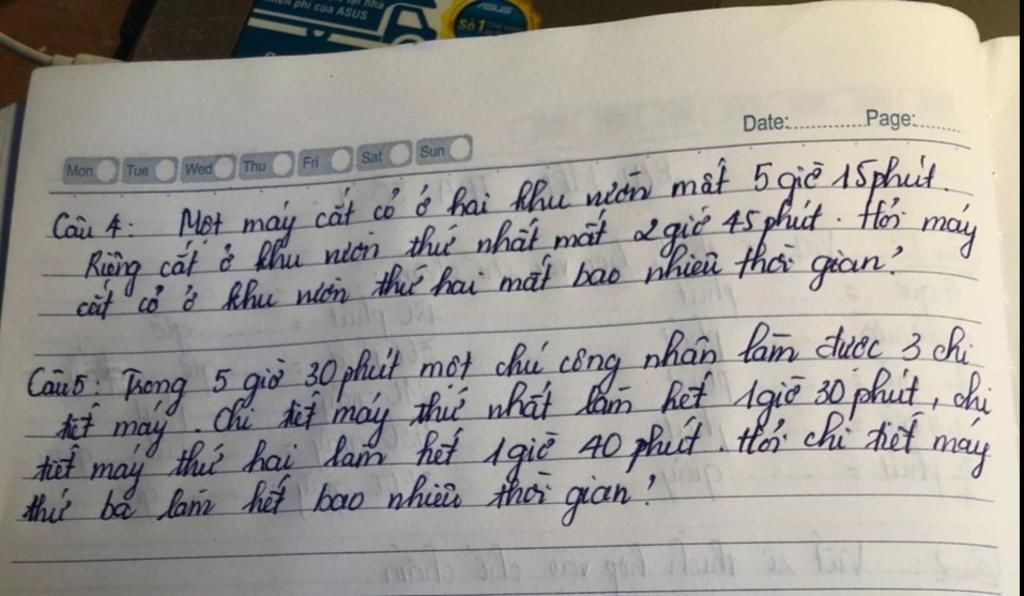 tại nhà
miễn phí của ASUS
ASUS
Số 1
Date:..............Page:........
Mon Tue Wed Thu Fri Sat Sun
Câu 4: Một máy cắt cỏ ở hai khu vườn mất 5 giờ 15 phút.
Riêng cắt ở khu vườn thứ nhất mất 2 giờ 45 phút. Hỏi máy
cắt cỏ ở khu vườn thứ hai mất bao nhiêu thời gian?
Câu 5: Trong 5 giờ 30 phút một chú công nhân làm được 3 chi
tiết máy. Chi tiết máy thứ nhất làm hết 1 giờ 30 phút, chi
tiết máy thứ hai làm hết 1 giờ 40 phút. Hỏi chi tiết máy
thứ ba làm hết bao nhiêu thời gian?